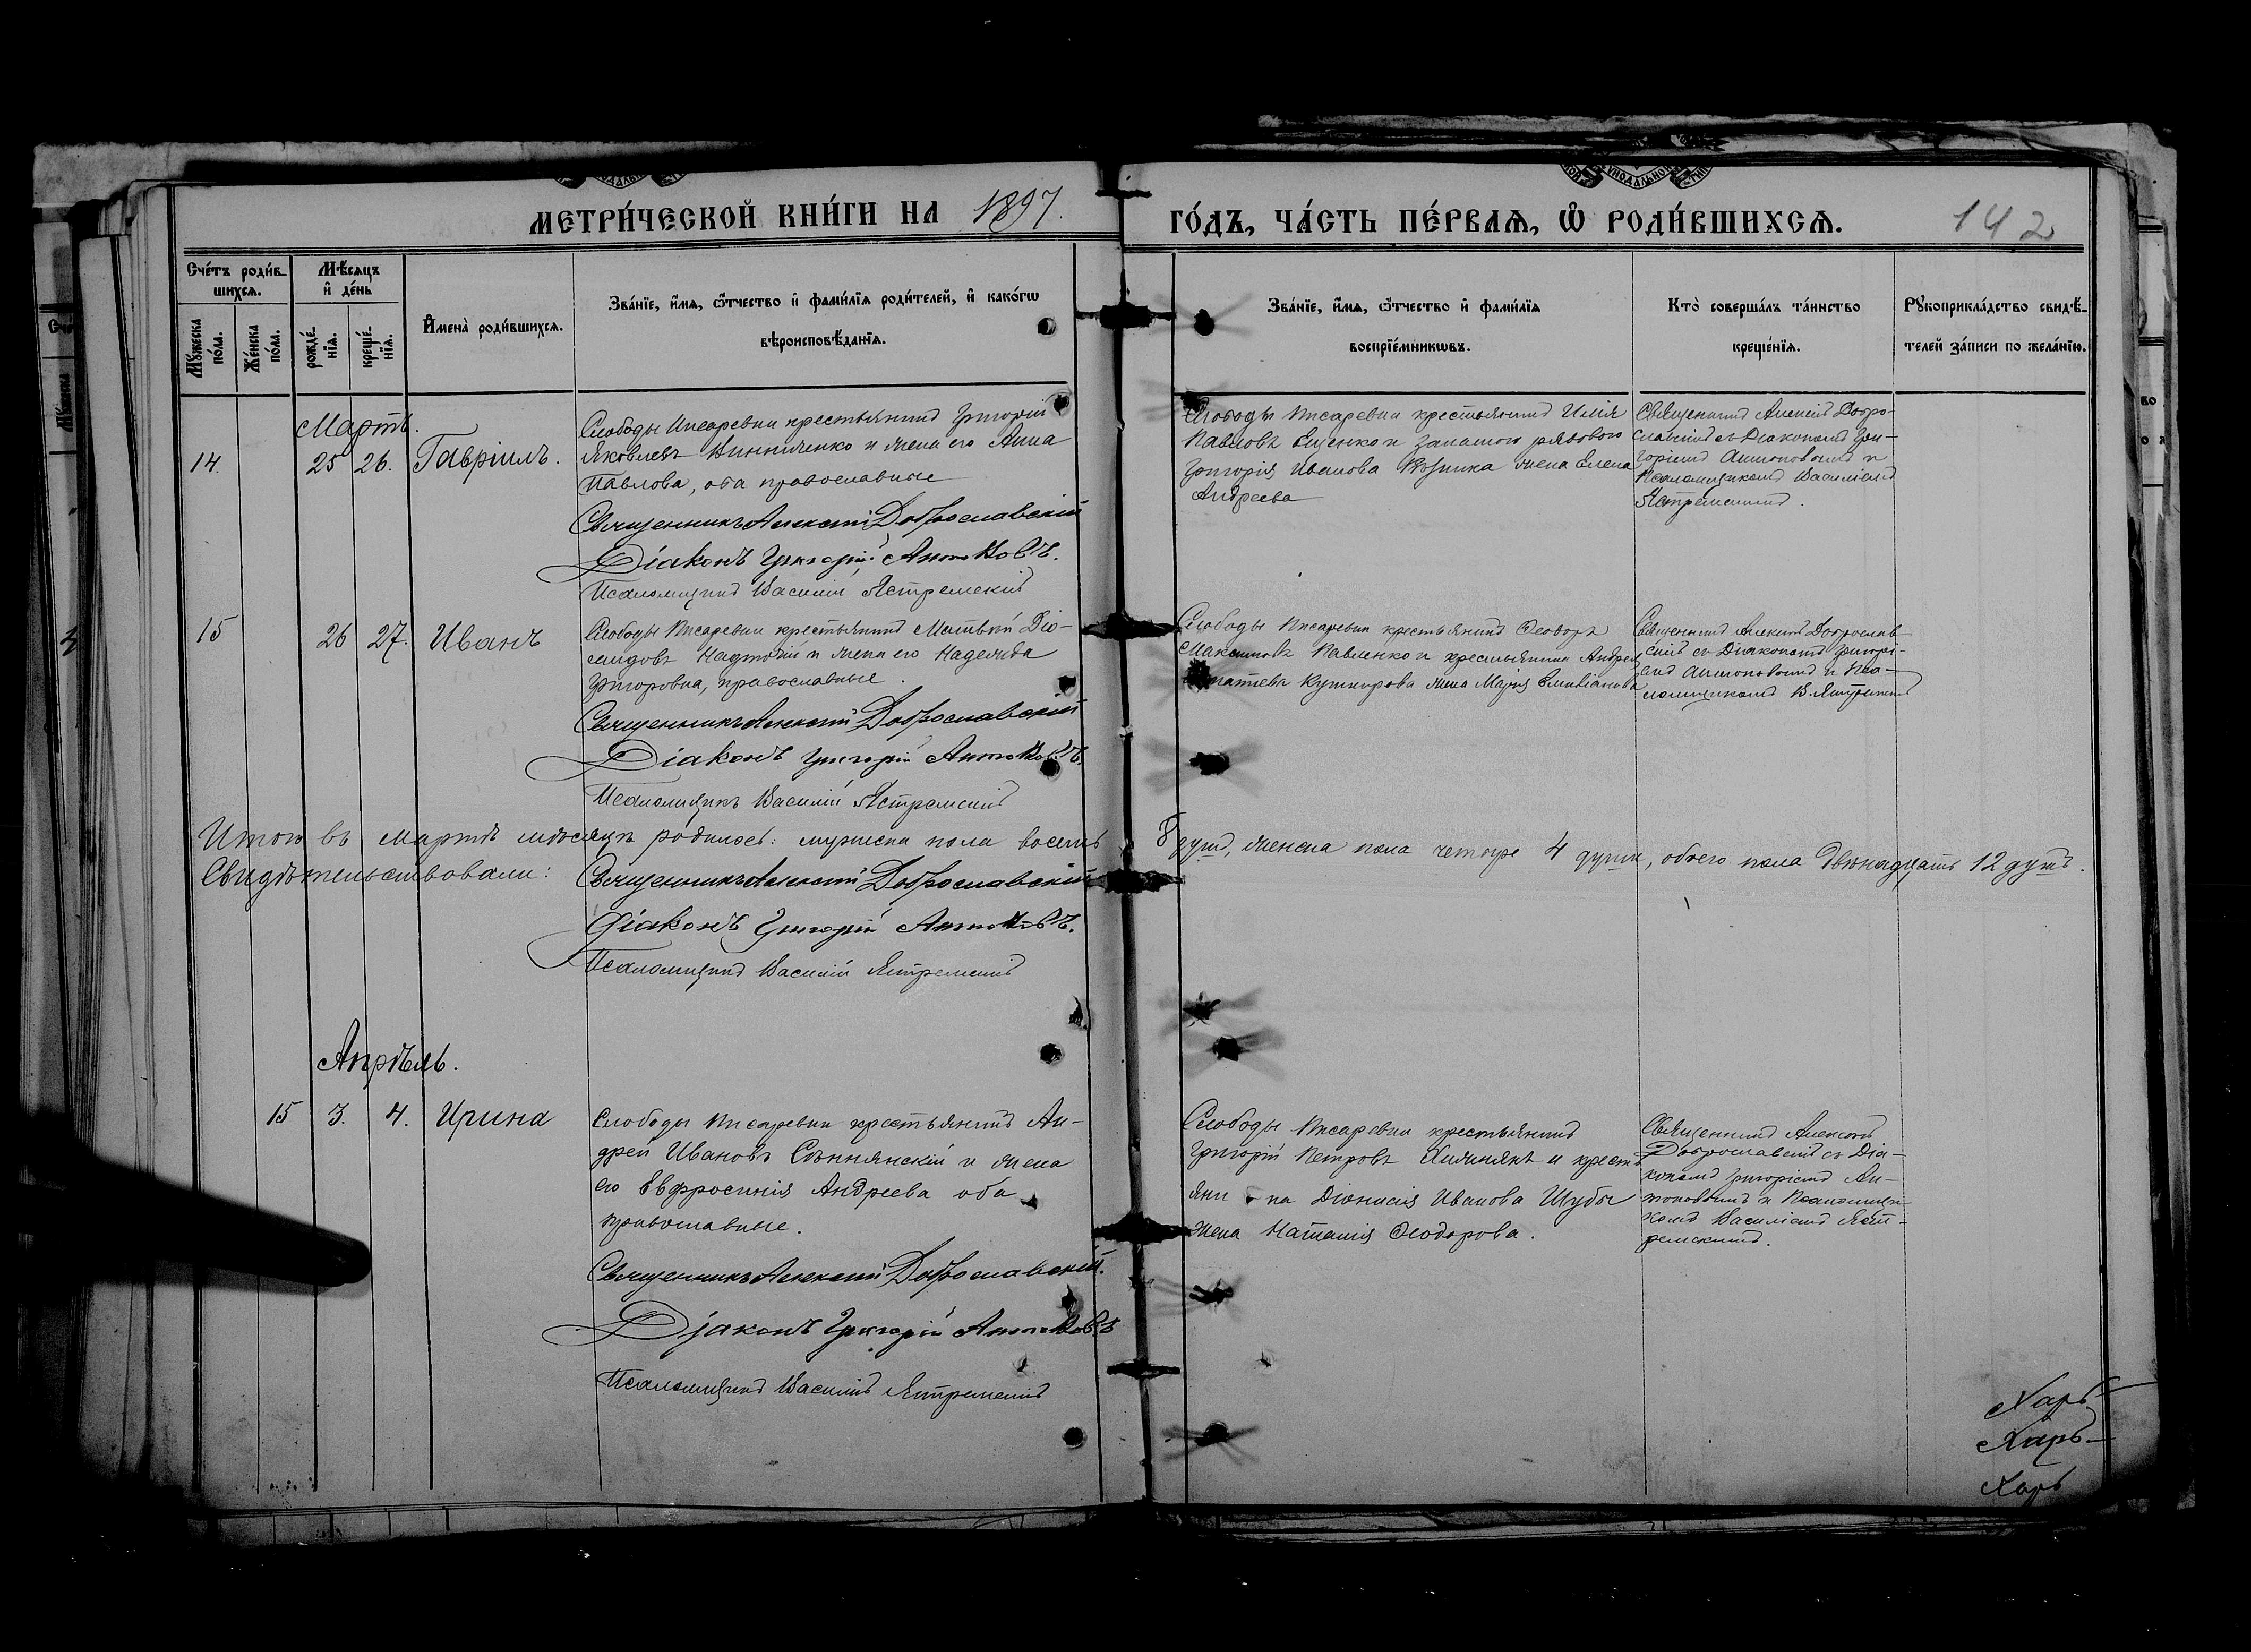 МЕТРИ́ЧЕСКОЙ КНИ́ГИ НА 1897.
ГО́ДЪ, ЧА́СТЬ ПЕ́РВАѦ, Ѿ РОДИ́ВШИХСѦ.
142
Сче́тъ роди́в-
шихсѧ.
Мѣ́сѧцъ
и҆ де́нь
Мꙋ́жеска
по́ла.
Же́нска
по́ла.
рожде́-
нїѧ.
креще́-
нїѧ.
И҆мена̀ роди́вшихсѧ.
Зва́нїе, и҆́мѧ, ѻ҆́тчество и҆ фами́лїѧ роди́телей, и҆ како́гѡ
вѣроисповѣ́данїѧ.
Зва́нїе, и҆́мѧ, ѻ҆́тчество и҆ фами́лїѧ
воспрїе́мникѡвъ.
Кто̀ соверша́лъ та́инство
креще́нїѧ.
Рꙋкоприкла́дство свидѣ́-
телей за́писи по жела́нїю.
Мартъ.
14. 25 26. Гавріилъ.
Слободы Писаревки крестьянинъ Григорій
Яковлевъ Винниченко и жена его Анна
Павлова, оба православные
Священникъ Алексій Доброславскій
Діаконъ Григорій Антоновъ.
Псаломщикъ Василій Ястремскій
Слободы Писаревки крестьянинъ Илія
Павловъ Ищенко и запасного рядового
Григорія Иванова жена Елена
Андреева
Священникъ Алексій Добро-
славскій съ Діакономъ Гри-
горіемъ Антоновымъ и
Псаломщикомъ Василіемъ
Ястремскимъ.
15 26 27. Иванъ
Слободы Писаревки крестьянинъ Матвѣй Діо-
мидовъ Надточій и жена его Надежда
Григоровна, православные.
Священникъ Алексій Доброславскій
Діаконъ Григорій Антоновъ.
Псаломщикъ Василій Ястремскій
Слободы Писаревки крестьянинъ Ѳеодоръ
Максимовъ Павленко и крестьянина Андрея
Кушнирова жена Марія Емиліанова
Священникъ Алексій Доброслав-
скій съ Діакономъ Григорі-
емъ Антоновымъ и Пса-
ломщикомъ В. Ястремскимъ
Итого въ мартѣ мѣсяцѣ родилось: мужеска пола восемь 8 душъ, женска пола четыре 4 души, обоего пола двѣнадцать 12 душъ.
Свидѣтельствовали: Священникъ Алексій Доброславскій
Діаконъ Григорій Антоновъ.
Псаломщикъ Василій Ястремскій
Апрѣль.
15 3. 4. Ирина
Слободы Писаревки крестьянинъ Ан-
дрей Ивановъ Сѣннянскій и жена
его Евфросинія Андреева оба
православные.
Священникъ Алексій Доброславскій.
Діаконъ Григорій Антоновъ
Псаломщикъ Василій Ястремскій
Слободы Писаревки крестьянинъ
Григорій Петровъ и кресть
яни на Діонисія Иванова Шубы
жена Наталія Ѳеодорова.
Священникъ Алексій
Доброславскій съ Діа-
кономъ Григоріемъ Ан-
тоновымъ и Псаломщи-
комъ Василіемъ Яст-
ремскимъ.
Харь
Харь
Харь